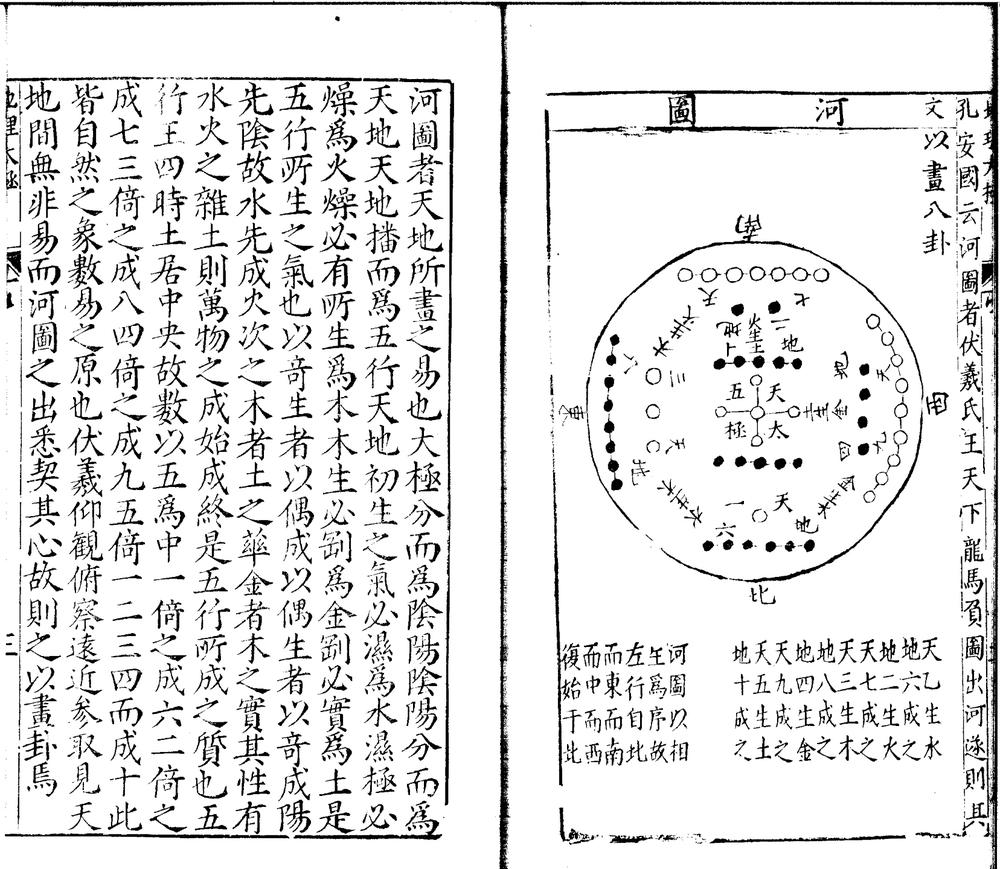 孔安國云河圖者伏羲氏王天下龍馬負圖出河遂則其
文以畫八卦
河圖
南
七
二
天
地
火生土
木生火
八
三
天
地
東
五
天
極
太
土生金
地
天
四
九
西
金生水
水生木
一
天
六
地
北
天乙生水
地六成之
地二生火
天七成之
天三生木
地八成之
地四生金
天九成之
天五生土
地十成之
河圖以相
生為序故
左行自北
而東而南
而中而西
復始于北
河圖者天地所畫之易也大極分而爲陰陽陰陽分而爲
天地天地播而爲五行天地初生之氣必濕爲水濕極必
燥爲火燥必有所生爲木木生必剛爲金剛必實爲土是
五行所生之氣也以奇生者以偶成以偶生者以奇成陽
先陰故水先成火次之木者土之華金者木之實其性有
水火之雜土則萬物之成始成終是五行所成之質也五
行王四時土居中央故數以五爲中一倚之成六二倚之
成七三倚之成八四倚之成九五倚一二三四而成十此
皆自然之象數易之原也伏羲仰觀俯察遠近參取見天
地間無非易而河圖之出悉契其心故則之以畫卦焉
三